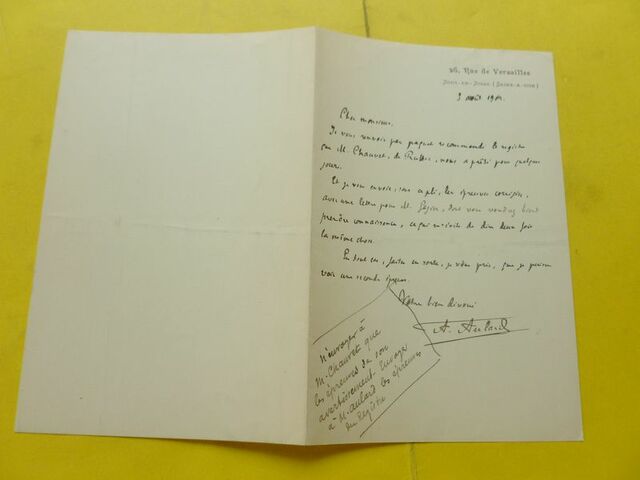 26, Rue de Versailles
3 août 19
Cher monsieur,
Je vous renvoie par paquet recommandé le registre
que M. Chauvet, de nous a prêté pour quelques
jours.
Et je vous envoie, sous ce pli, les épreuves corrigées,
avec une lettre pour M. dont vous voudrez bien
prendre connaissance, ce qui m'évite de dire deux fois
la même chose.
En tout cas, faites en sorte, je vous prie, que je puisse
voir une seconde épreuve.
Votre bien dévoué
A. Aulard
N'envoyer à
M. Chauvet que
les épreuves de son
avertissement. Envoyer
à M. Aulard les épreuves
du registre